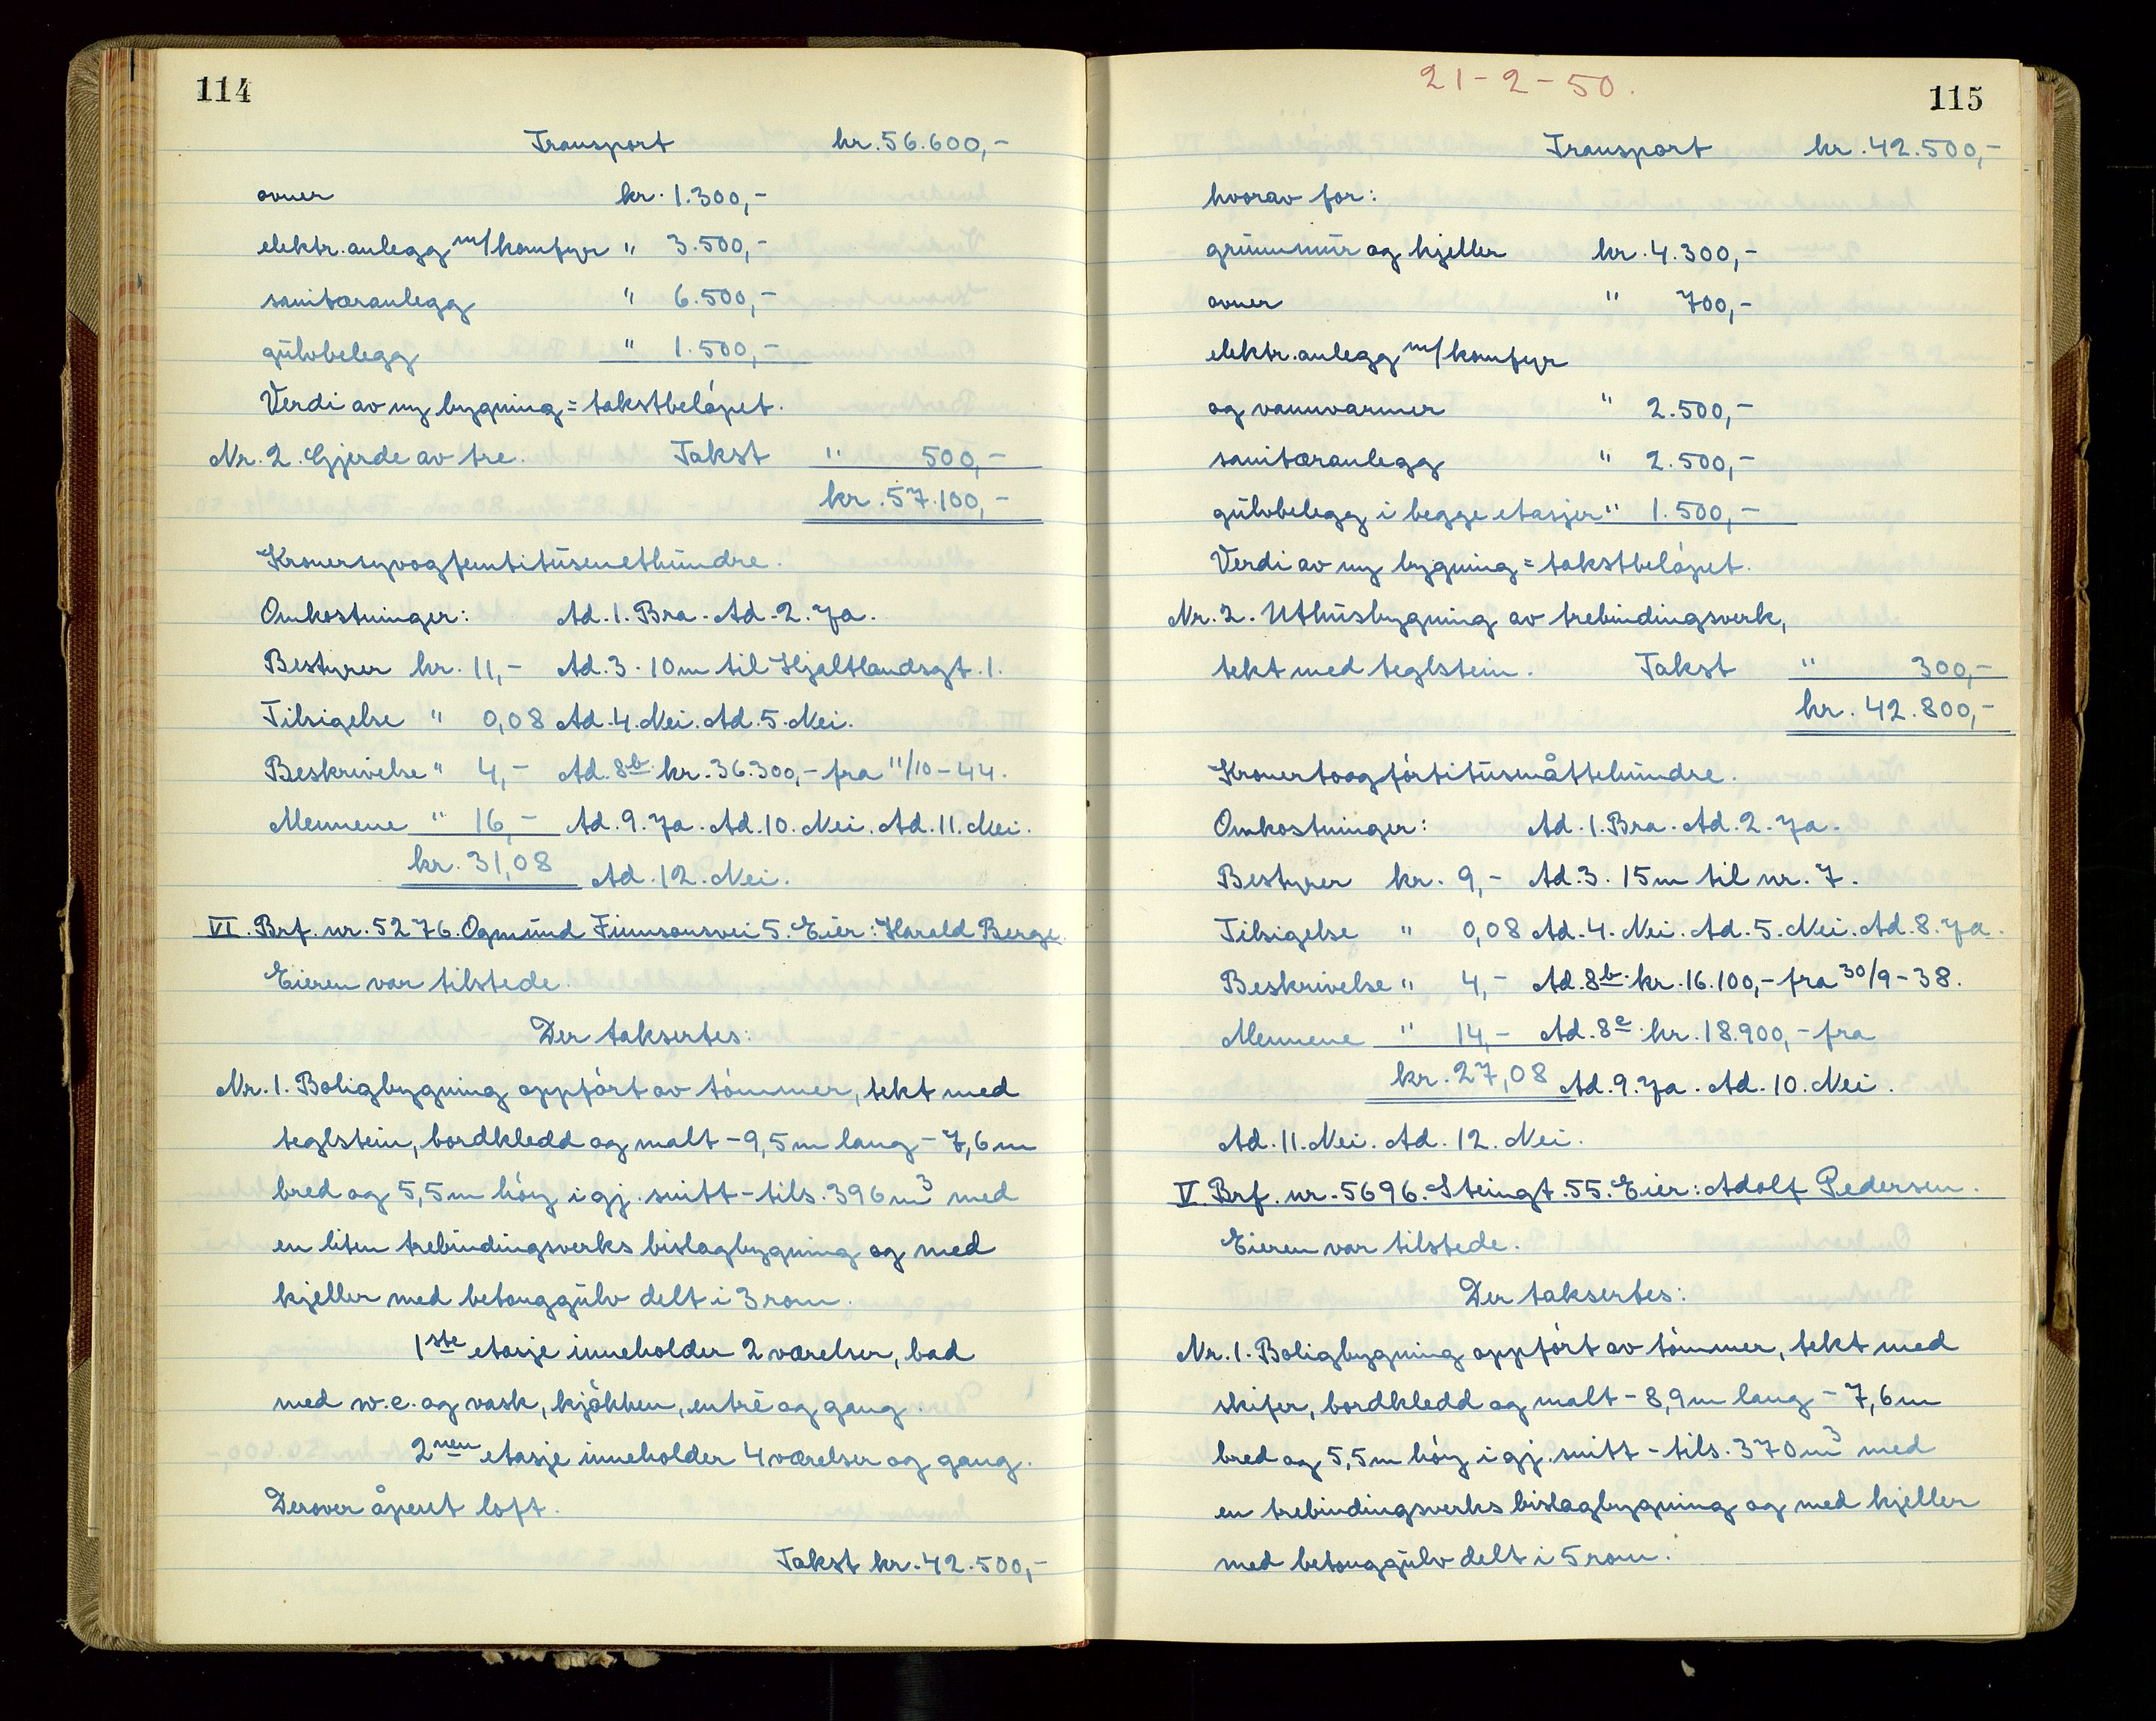 114
Transport kr. 56.600,-
ovner kr. 1.300,-
elektr. anlegg m/komfyr " 3.500,-
sanitæranlegg " 6.500,-
gulvbelegg " 1.500,-
Verdi av ny bygning = takstbeløpet.
Nr. 2. Gjerde av tre. Takst " 500,-
kr. 57.100,-
Kronersyvogfemtitusenethundre.
Omkostninger: Ad. 1. Bra. Ad. 2. Ja.
Bestyrer kr. 11,- Ad. 3. 10 m til Hjaltlandsgt. 1.
Tilsigelse " 0,08 Ad. 4. Nei. Ad. 5. Nei.
Beskrivelse " 4,- Ad. 8b. kr. 36.300,- fra 11/10-44.
Mennene " 16,- Ad. 9. Ja. Ad. 10. Nei. Ad. 11. Nei.
kr. 31,08 Ad. 12. Nei.
VI. Brf. nr. 5276. Ogmund Finnsonsvei 5. Eier: Harald Berge.
Eieren var tilstede.
Der taksertes:
Nr. 1. Boligbygning oppført av tømmer, tekt med
teglstein, bordkledd og malt - 9,5 m lang - 7,6 m
bred og 5,5 m høy i gj. snitt - tils. 396 m³ med
en liten trebindingsverks bislagbygning og med
kjeller med betonggulv delt i 3 rom.
1ste etasje inneholder 2 værelser, bad
med w.c. og vask, kjøkken, entré og gang.
2nen etasje inneholder 4 værelser og gang.
Derover åpent loft.
Takst kr. 42.500,-
21-2-50.
115
Transport kr. 42.500,-
hvorav for:
grunnmur og kjeller kr. 4.300,-
ovner " 700,-
elektr. anlegg m/komfyr
og vannvarmer " 2.500,-
sanitæranlegg " 2.500,-
gulvbelegg i begge etasjer " 1.500,-
Verdi av ny bygning = takstbeløpet.
Nr. 2. Uthusbygning av trebindingsverk,
tekt med teglstein. Takst " 300,-
kr. 42.800,-
Kronertoogførtitusenåttehundre.
Omkostninger: Ad. 1. Bra. Ad. 2. Ja.
Bestyrer kr. 9,- Ad. 3. 15 m til nr. 7.
Tilsigelse " 0,08 Ad. 4. Nei. Ad. 5. Nei. Ad. 8. Ja.
Beskrivelse " 4,- Ad. 8b. kr. 16.100,- fra 30/9-38.
Mennene " 14,- Ad. 8c. kr. 18.900,- fra
kr. 27,08 Ad. 9. Ja. Ad. 10. Nei.
Ad. 11. Nei. Ad. 12. Nei.
V. Brf. nr. 5696. Steingt. 55. Eier: Adolf Pedersen.
Eieren var tilstede.
Der taksertes:
Nr. 1. Boligbygning oppført av tømmer, tekt med
skifer, bordkledd og malt - 8,9 m lang - 7,6 m
bred og 5,5 m høy i gj. snitt - tils. 370 m³ med
en trebindingsverks bislagbygning og med kjeller
med betonggulv delt i 5 rom.